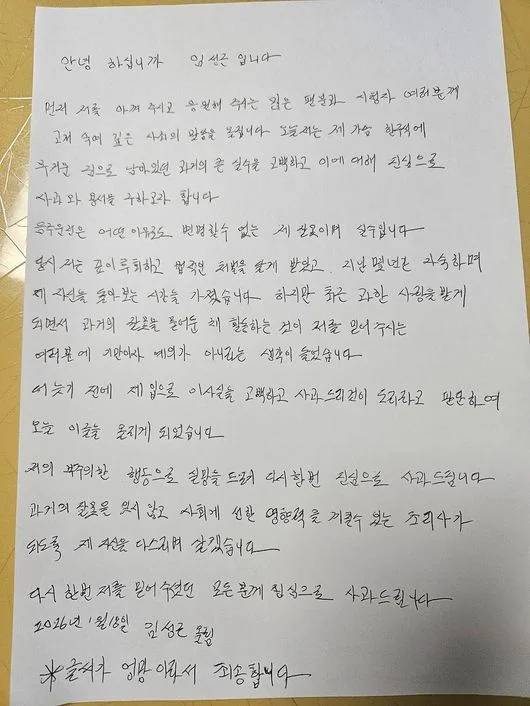 안녕 하십니까 임성근 입니다
먼저 저를 아껴 주시고 응원해 주시는 많은 팬분과 시청자 여러분께
고개 숙여 깊은 사죄의 말씀을 올립니다 오늘 저는 제 가슴 한구석에
무거운 짐으로 남아있던 과거의 큰 실수를 고백하고 이에 대해 진심으로
사과와 용서를 구하고자 합니다
음주운전은 어떤 이유로도 변명할수 없는 제 잘못이며 실수입니다
당시 저는 깊이 후회하고 법적인 처벌을 달게 받았고, 지난 몇년간 자숙하며
제 자신을 돌아 보는 시간을 가졌습니다 하지만 최근 과한 사랑을 받게
되면서 과거의 잘못을 묻어둔 채 활동하는 것이 저를 믿어 주시는
여러분에 기만이자 예의가 아니라는 생각이 들었습니다
더 늦기 전에 제 입으로 이사실을 고백하고 사과드리것이 도리라고 판단하여
오늘 이글을 올리게 되었습니다
저의 부주의한 행동으로 실망을 드려 다시한번 진심으로 사과드립니다
과거의 잘못을 잊지 않고 사회에 선한 영향력을 끼칠수 있는 조리사가
되도록 제 자신을 다스리며 살겠습니다
다시 한번 저를 믿어 주셨던 모든 분께 진심으로 사과드립니다
2026년 1월 18일 임성근 올림
※글씨가 엉망 이라서 죄송합니다